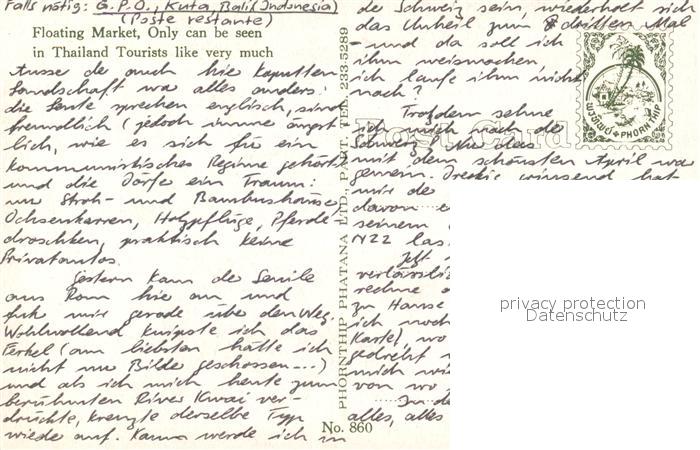 Falls nötig: G.P.O., Kuta, Bali (Indonesia)
(Poste restante)
Floating Market, Only can be seen
in Thailand Tourists like very much
Ausser de auch hie kaputten
Landschaft wa alles anders:
die Leute sprechen englisch, sind
freundlich (jedoch imme ängst-
lich, wie es sich für ein
kommunistisches Regime gehört)
und die Dörfe ein Traum:
nu Stroh- und Bambushäuse,
Ochsenkarren, Holzpflüge, Pferde-
droschken, praktisch keine
Privatautos.
Gestern kam de Senile
aus Rom hie an und
fuh mir gerade übe den Weg.
Wohlwollend knipste ich das
Ferkel (am liebsten hätte ich
nicht nu Bilde geschossen...)
und als ich mich heute zum
berühmten River Kwai ver-
drückte, kreuzte derselbe Typ
wiede auf. Kaum werde ich in
PHORNTHIP PHATANA LTD., PART. TEL. 233-5289
No. 860
de Schweiz sein, wiederholt sich
das Unheil zum dritten Mal
- und da soll ich
ihm weismachen,
ich laufe ihm nicht
nach?
Trotzdem sehne
ich mich nach de
Schweiz. Nu das
mit dem schönsten April wa
gemein. Dreckig grinsend hat
mir de
davon e
seinem
N22 las
Jetzt
verlässli
rechne
zu Hause
ich noch
Karte), wo
gedreht
mich wi
von wo
In de
alles, alles
Post Card
PHORNTHIP
privacy protection
Datenschutz